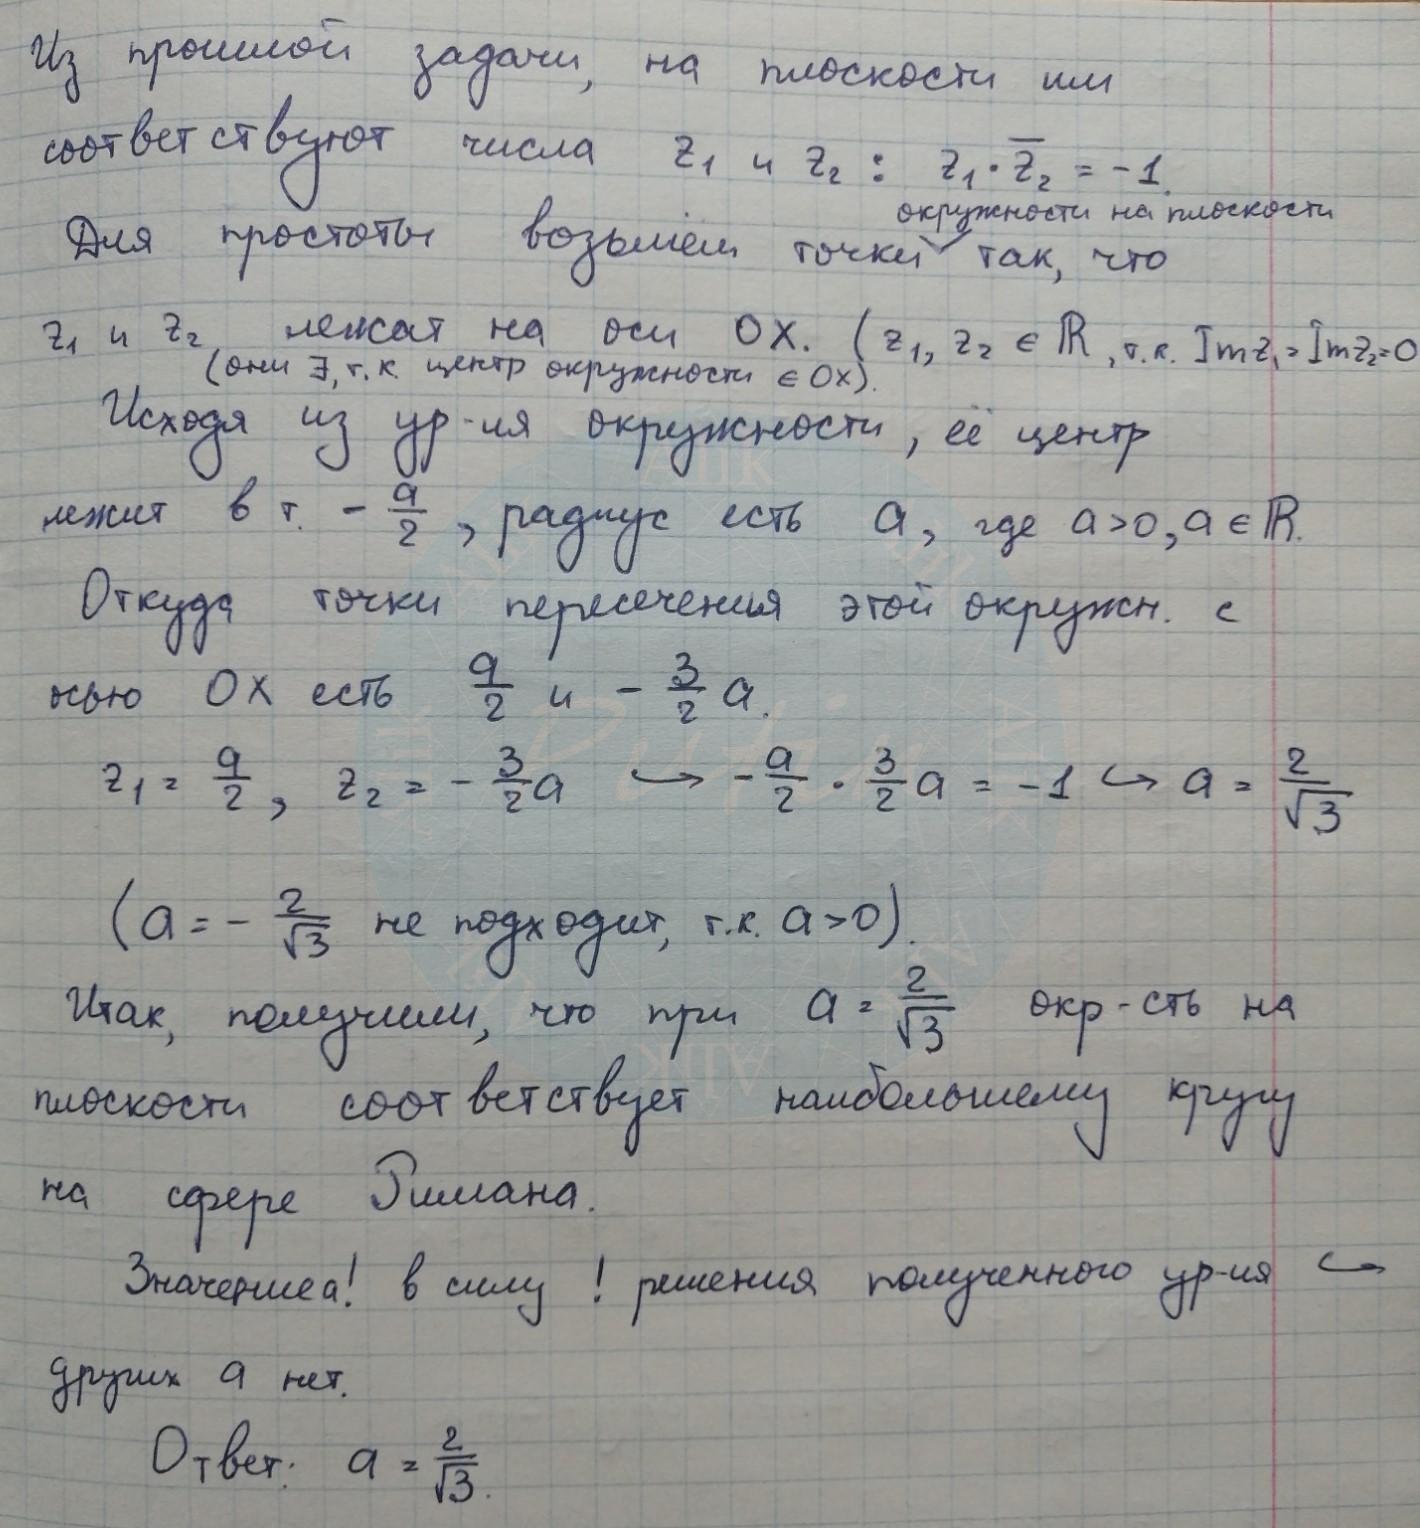 Из прошлой задачи, на плоскости им
соответствуют числа z₁ и z₂ : z₁·z̅₂ = -1.
окружности на плоскости
Для простоты возьмём точки ✓ так, что
z₁ и z₂ лежат на оси OX. (z₁, z₂ ∈ ℝ, т.к. Imz₁=Imz₂=0
(они ∃, т.к. центр окружности ∈ OX).
Исходя из ур-ия окружности, её центр
лежит в т. -a/2, радиус есть a, где a>0, a∈ℝ.
Откуда точки пересеченья этой окружн. с
осью OX есть a/2 и -3/2 a.
z₁ = a/2, z₂ = -3/2 a ↪ -a/2 · 3/2 a = -1 ↪ a = 2/√3
(a = -2/√3 не подходит, т.к. a>0).
Итак, получили, что при a = 2/√3 окр-сть на
плоскости соответствует наибольшему кругу
на сфере Римана.
Значение a! в силу ! решения полученного ур-ия ↪
других a нет.
Ответ: a = 2/√3.